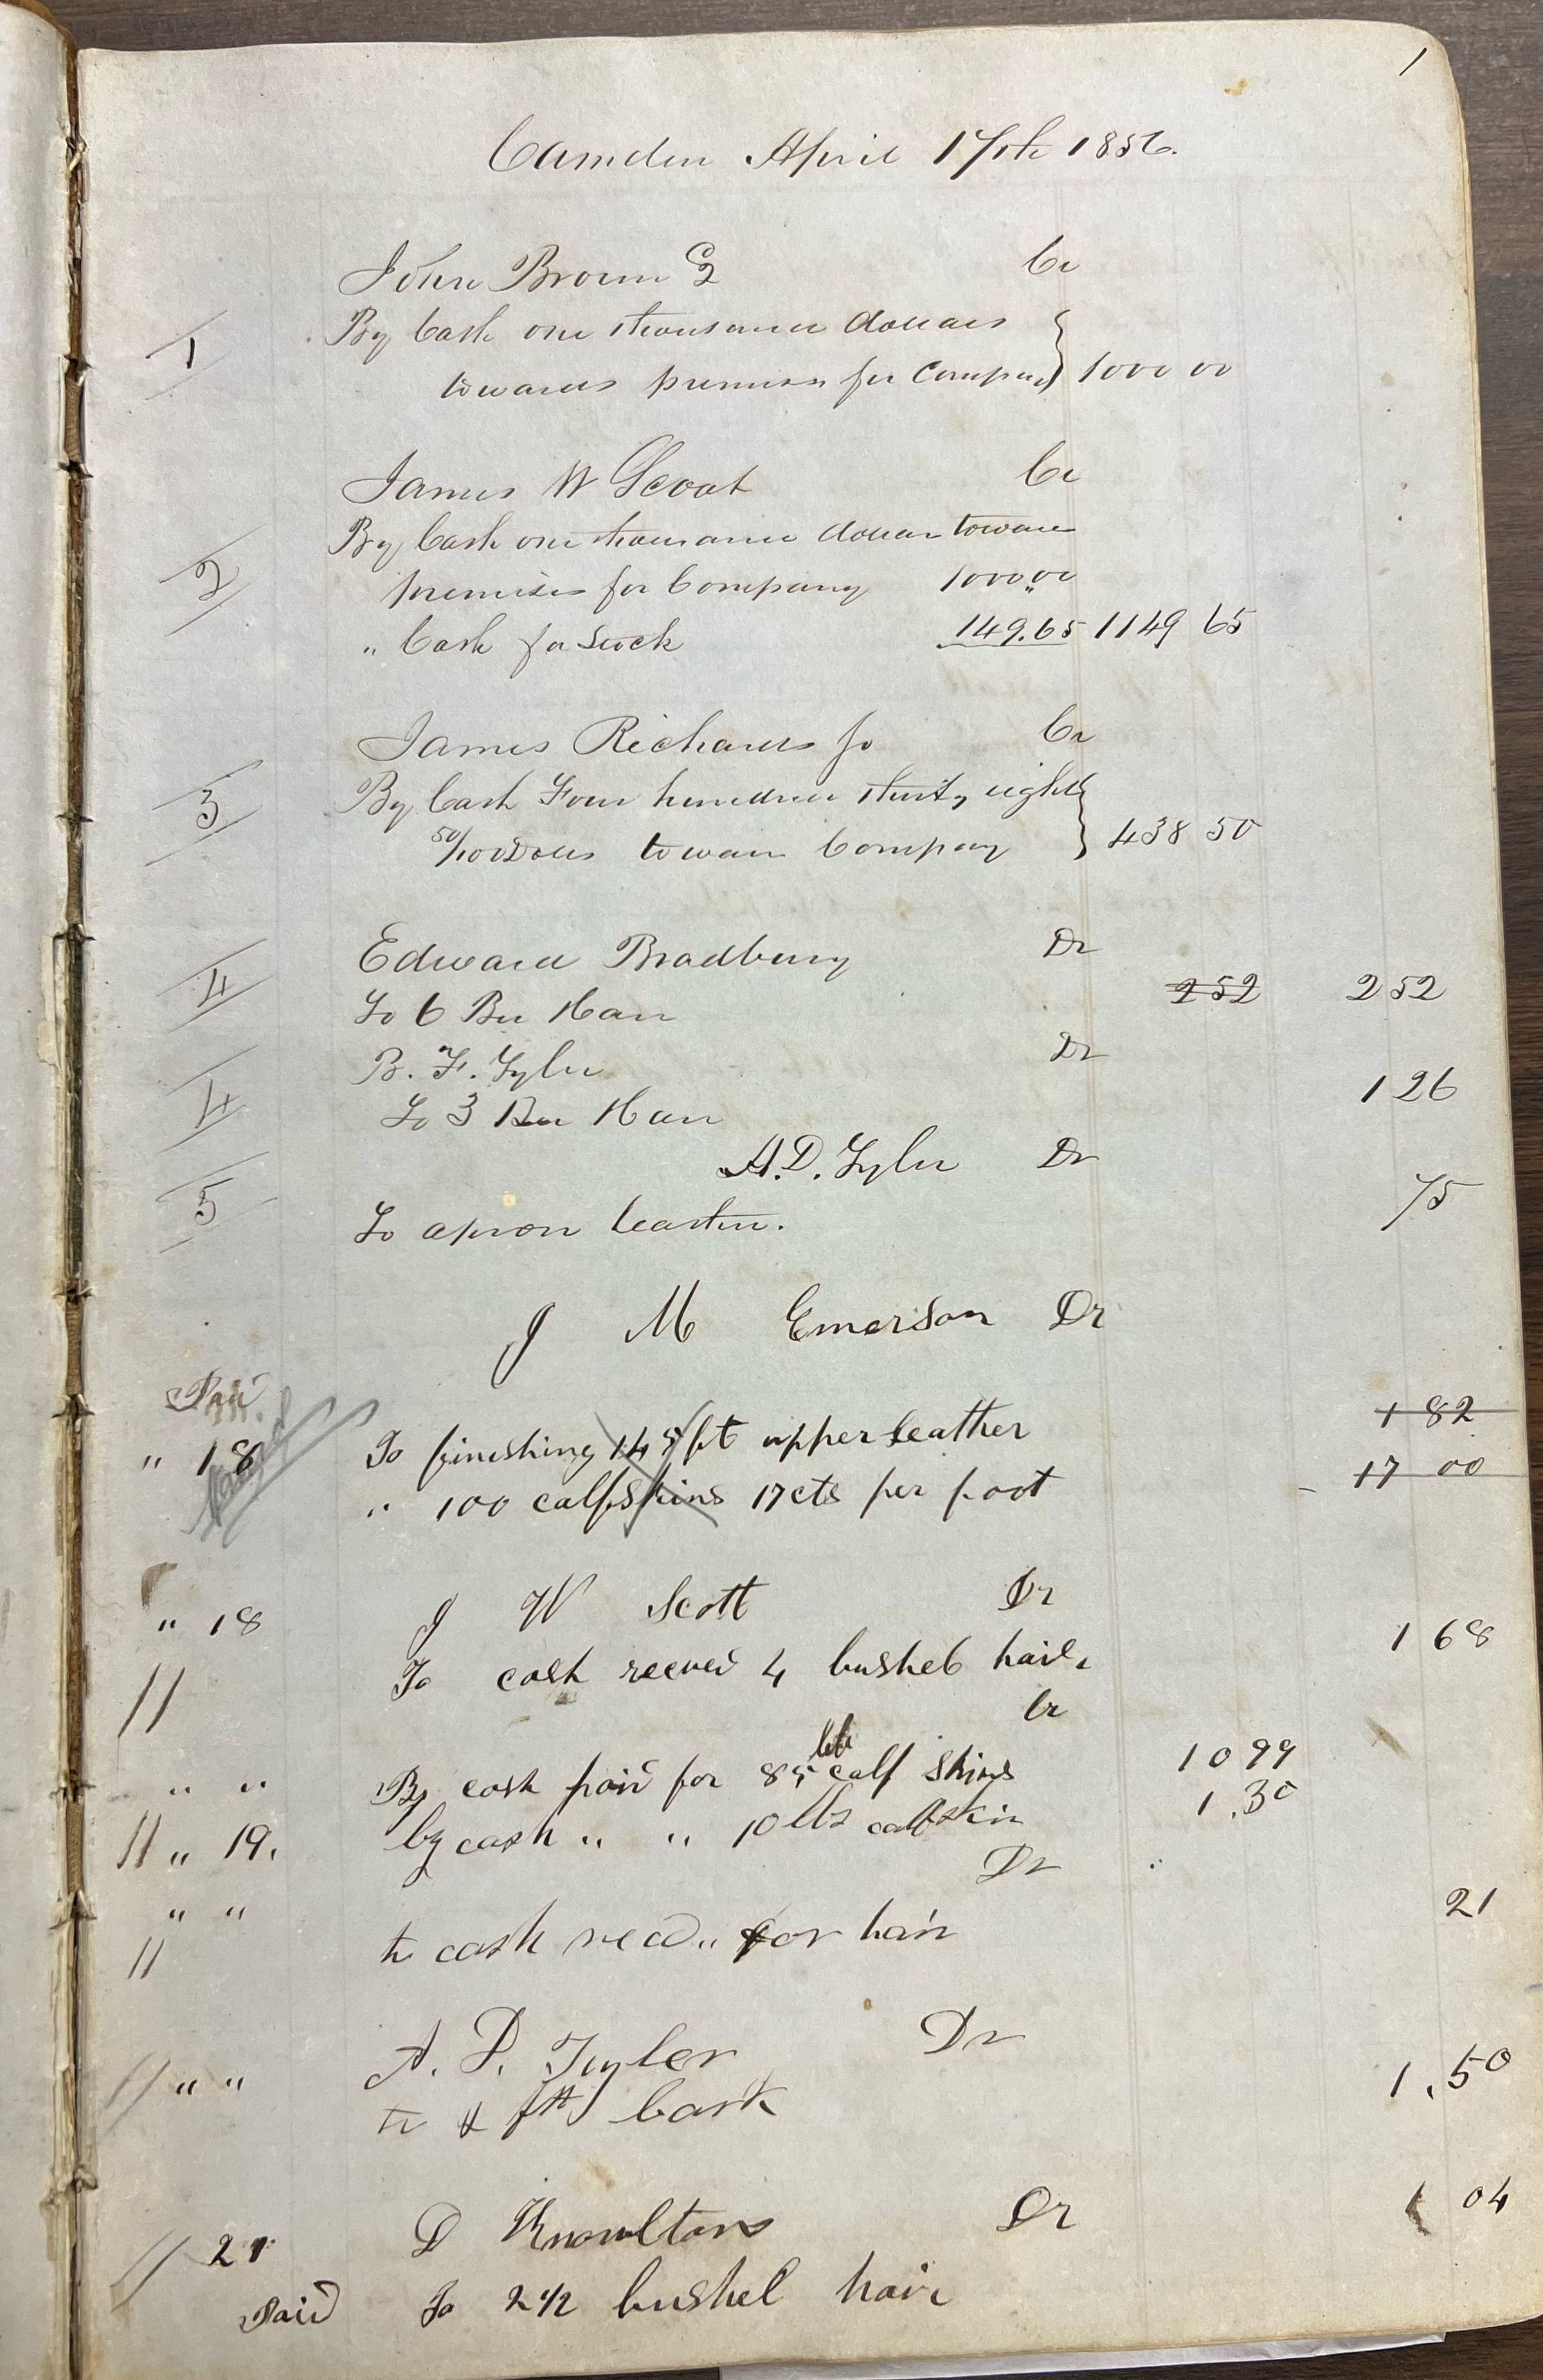 1
Camden April 17th 1856.
John Brown 2 Cr
1 By Cash one thousand dollars
towards premises for Company 1000 00
James W Scoat Cr
By Cash one thousand dollar toward
2 premises for Company 1000.00
" Cash for Stock 149.65 1149 65
James Richards Jr Cr
3 By Cash Four hundred thirty eight
50/100 Dolls toward Company 438 50
Edward Bradbury Dr
4 To 6 Bu Hair 252 252
B. F. Tyler Dr
4 To 3 Bu Hair 126
A. D. Tyler Dr
5 To apron leather. 75
J M Emerson Dr
Paid
" 18 To finishing 145 ft upper leather 182
" 100 calfskins 17 cts per foot 17 00
" 18 J W Scott Dr
To cash receved 4 bushels hair. 168
Cr
" " By cash paid for 85 lbs calf skins 10 99
" 19. by cash " " 10 lbs calfskin 1.30
Dr
" " to cash recd " for hair 21
" " A. D. Tyler Dr
to ft bark 1.50
21 D Knowlton Dr 1 04
Paid To 2 1/2 bushel hair